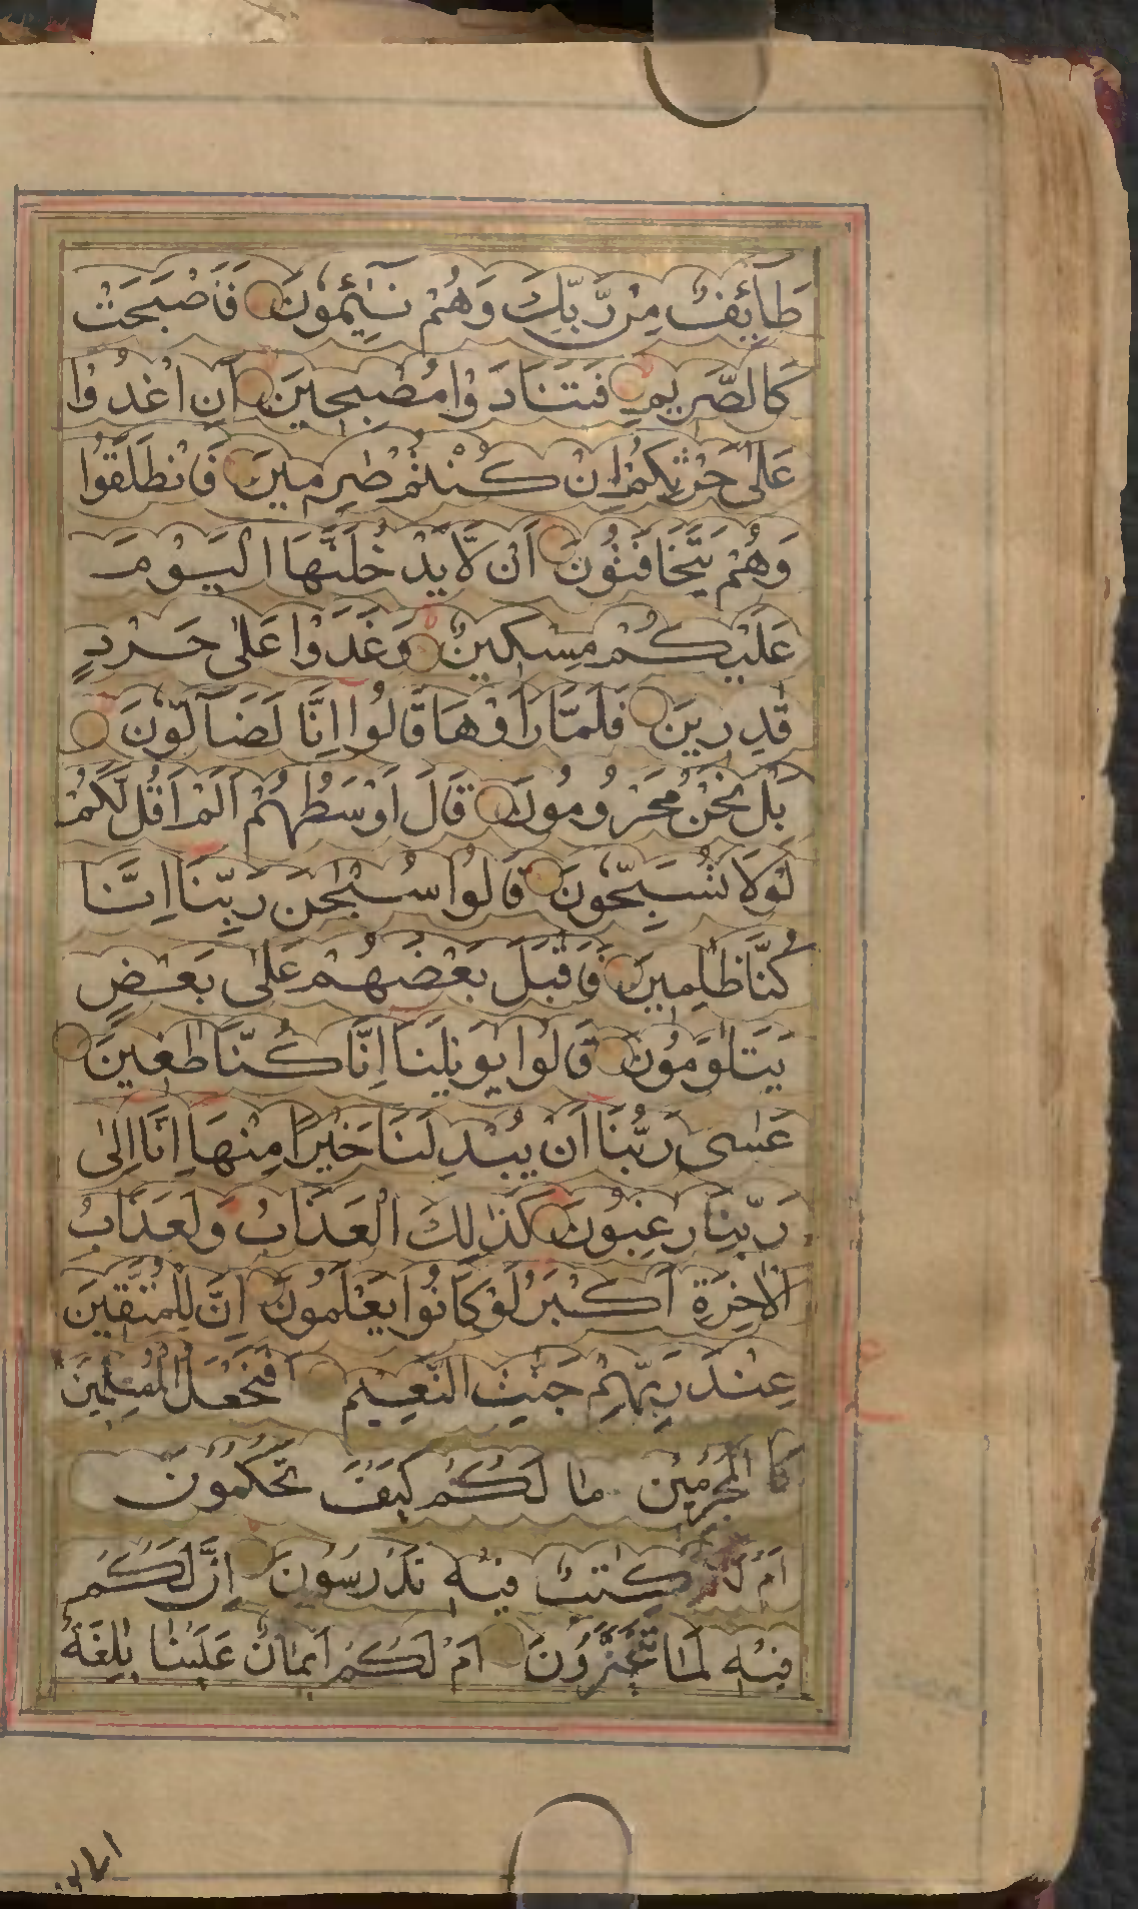 طَآئِفٌ مِنْ رَّبِّكَ وَهُمْ نَآئِمُونَ فَاَصْبَحَتْ
كَالصَّرِيمِ فَتَنَادَوْا مُصْبِحِينَ اَنِ اغْدُوْا
عَلٰى حَرْثِكُمْ اِنْ كُنْتُمْ صٰرِمِينَ فَانْطَلَقُوا
وَهُمْ يَتَخَافَتُوُنَ اَنْ لَّا يَدْخُلَنَّهَا الْيَوْمَ
عَلَيْكُمْ مِسْكِينٌ وَغَدَوْا عَلٰى حَرْدٍ
قٰدِرِينَ فَلَمَّا رَاَوْهَا قَالُوا اِنَّا لَضَآلُّونَ
بَلْ نَحْنُ مَحْرُومُونَ قَالَ اَوْسَطُهُمْ اَلَمْ اَقُلْ لَّكُمْ
لَوْلَا تُسَبِّحُونَ قَالُوا سُبْحٰنَ رَبِّنَا اِنَّا
كُنَّا ظٰلِمِينَ فَاَقْبَلَ بَعْضُهُمْ عَلٰى بَعْضٍ
يَتَلٰوَمُونَ قَالُوا يٰوَيْلَنَا اِنَّا كُنَّا طٰغِينَ
عَسٰى رَبُّنَا اَنْ يُبْدِلَنَا خَيْرًا مِنْهَا اِنَّا اِلٰى
رَبِّنَا رٰغِبُونَ كَذٰلِكَ الْعَذَابُ وَلَعَذَابُ
الْاٰخِرَةِ اَكْبَرُ لَوْ كَانُوا يَعْلَمُونَ اِنَّ لِلْمُتَّقِينَ
عِنْدَ رَبِّهِمْ جَنّٰتِ النَّعِيمِ اَفَنَجْعَلُ الْمُسْلِمِينَ
كَا الْمُجْرِمِينَ مَا لَكُمْ كَيْفَ تَحْكُمُونَ
اَمْ لَكُمْ كِتٰبٌ فِيهِ تَدْرُسُونَ اِنَّ لَكُمْ
فِيهِ لَمَا تَخَيَّرُونَ اَمْ لَكُمْ اَيْمَانٌ عَلَيْنَا بٰلِغَةٌ